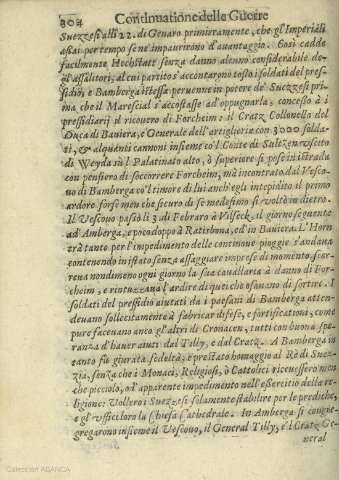 304 Continuatione delle Guerre
Suezzesi alli 22. di Genaro primieramente, che gl'Imperiali
assai per tempo se ne impaurirono d'auantaggio. Così cadde
facilmente Hochstatt senza danno alcuno considerabile de-
gl'assalitori, al cui partito s'accontarono tosto i soldati del presi-
sidio, e Bamberga istessa peruenne in potere de' Suezzesi pri-
ma che il Marescial s'accostasse ad oppugnarla; concesso à i
pressidiarij il ricouero di Forcheim: il Cratz Collonello del
Duca di Bauiera, e Generale dell'artiglieria con 3000 solda-
ti, & alquanti cannoni insieme co'l Conte di Sultzen vscito
di Weyda in'l Palatinato alto, ò superiore si pose in istrada
con pensiero di soccorrere Forcheim, mà incontrato dal Vesco-
uo di Bamberga co'l timore di lui anch'egli intepidito il primo
ardore forse men che sicuro di se medesimo si voltò in dietro.
Il Vescouo passò li 3 di Febraro à Vilseck, il giorno seguente
ad Amberga, e poco doppo à Ratisbona, ed in Bauiera. L'Horn
trà tanto per l'impedimento delle continoue pioggie s'andaua
contenendo in stato senza assaggiare imprese di momento, scor-
reua nondimeno ogni giorno la sua cauallaria à danno di For-
cheim, e rintuzzana l'ardire di quei che osauano di sortire. I
soldati del pressidio aiutati da i paesani di Bamberga atten-
deuano sollecitamente à fabricar difese, e fortificationi, come
pure faceuano anco gl'altri di Cronacen, tutti con buona spe-
ranza d'hauer aiuti dal Tilly, e dal Cratz. A Bamberga in
tanto fù giurata fedeltà, e prestato homaggio al Rè di Sue-
zia, senza che i Monaci, Religiosi, ò Cattolici riceuessero men
che picciolo, od apparente impedimento nell'essercitio della re-
ligione: Vollero i Suezzesi solamente stabilire per le prediche,
e gl'ufficii loro la Chiesa Cathedrale. In Amberga si congre-
gregarono insieme il Vescouo, il General Tilly, e'l Cratz Ge-
neral
Colección ABANCA